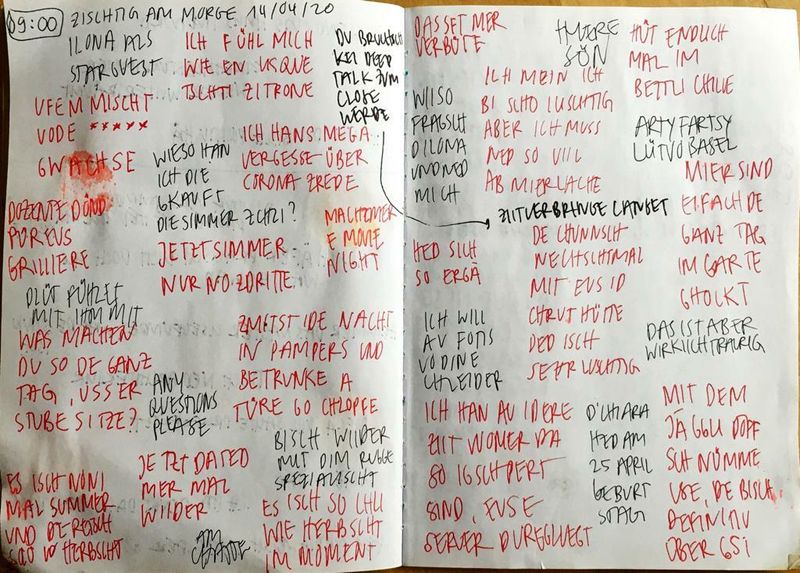 09:00
ZISCHTIG AM MORGE 14/04/20
ILONA ALS
STARGUEST
ICH FÜHL MICH
WIE EN USQUE
TSCHTI ZITRONE
DU BRUCHSCH
KEI DEEP
TALK ZUM
CLOSE
WERDE
UFEM MISCHT
VODE *****
GWACHSE
WIESO HAN
ICH DIE
GKAUFT
DIE SIMMER ZCHLI?
ICH HANS MEGA
VERGESSE ÜBER
CORONA ZREDE
DOZENTE DÖND
POR EUS
GRILLIERE
JETZT SIMMER
NUR NO ZDRITTE
MACHE MER
E MOVIE
NIGHT
MIT IHM MIT
WAS MACHEN
DU SO DE GANZ
TAG, USSER
STUBE SITZE?
ANY
QUESTIONS
PLEASE
ZMITST IDE NACHT
IN PAMPERS UND
BETRUNKE A
TÜRE GO CHLOPFE
BISCH WIIDER
MIT DIM RUGGE
SPEZIALISCHT
JETZT DATED
MER MAL
WIIDER
ES ISCH NONI
MAL SUMMER
UND DE REISCH
SCHO HERBSCHT
AM
ES ISCH SO CHLI
WIE HERBSCHT
IM MOMENT
DAS SET MER
VERBÜTE
SÖN
HÜT ENDLICH
MAL IM
BETTLI CHILLE
WIISO
FRAGSCH
D ILONA
UND NED
MICH
ICH MEIN ICH
BI SCHO LUSCHTIG
ABER ICH MUSS
NED SO VIIL
AB MIER LACHE
ARTY FARTSY
LÜT VO BASEL
ZIIT VERBRINGE LANGET
MIER SIND
EIFACH DE
GANZ TAG
IM GARTE
GHOCKT
HED SICH
SO ERGÄ
DE CHUNNSCH
NECHSCHTMAL
MIT EUS ID
CHRUTHÜTTE
DED ISCH
SEHR LUSCHTIG
ICH WILL
AU FOTIS
VO DINE
CHLEIDER
DAS IST ABER
WIRKLICH TRAURIG
ICH HAN AU IDERE
ZIIT WO MER DA
SO IGSCHPERT
SIND, EUSE
SERVER DUREGLUEGT
D'CHIARA
HED AM
25 APRIL
GEBURT
STAG
MIT DEM
JÄGGLI DÖRF
SCH NÜMME
USE, DE BISCH
DEFINITIV
ÜBER GSI